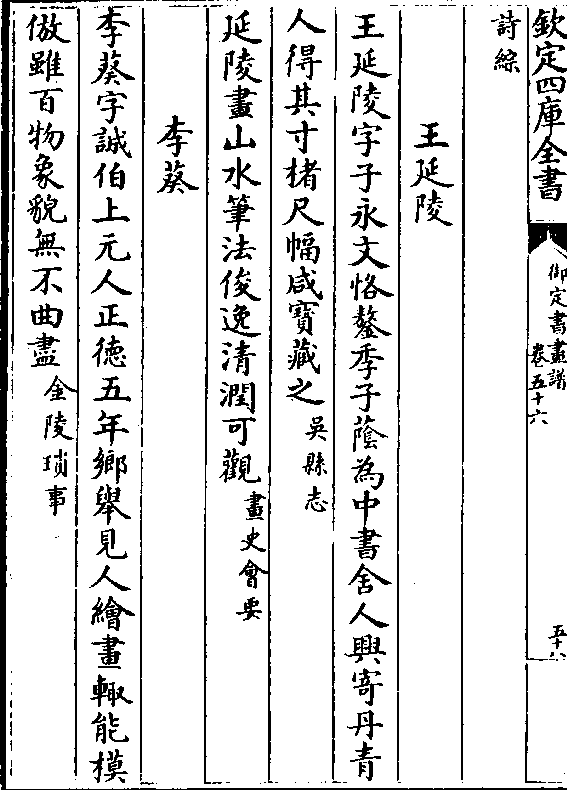 欽定四庫全書
御定書畫譜
卷五十六
五十八
詩綜
王延陵
王延陵字子永文恪鏊季子蔭為中書舍人興寄丹青
人得其寸楮尺幅咸寶藏之吳縣志
延陵畫山水筆法俊逸清潤可觀畫史會要
李葵
李葵字誠伯上元人正德五年鄉舉見人繪畫輙能模
倣雖百物象貌無不曲盡金陵瑣事